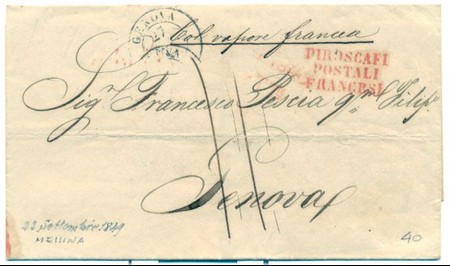 GENOVA
27
Col vapore francese
PIROSCAFI
POSTALI
FRANCESI
Sig.r Francesco Pescia qm Filip.o
Genova
22 Settembre 1849
MESSINA
40